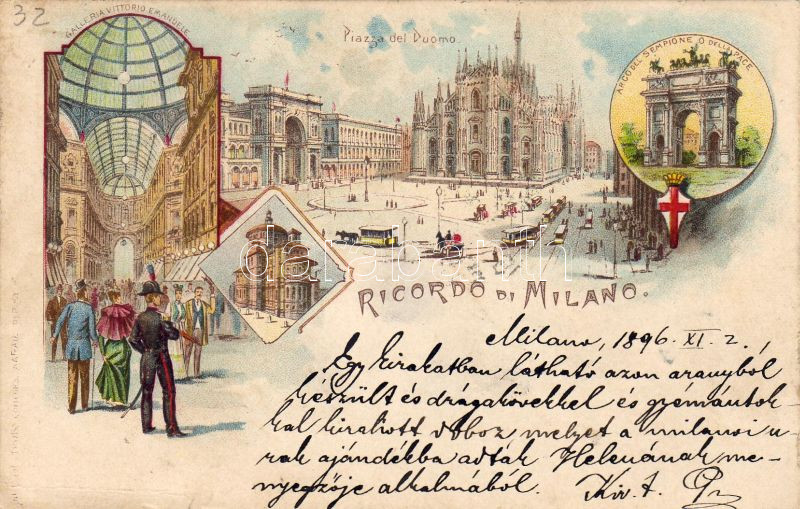 32
GALLERIA VITTORIO EMANUELE
Piazza del Duomo.
ARCO DEL SEMPIONE O DELLA PACE
darabanth
RICORDO DI MILANO.
Milano, 1896. XI. 2.,
Egy kirakatban látható azon aranyból
készült és drágakövekkel és gyémántok
kal kirakott doboz melyet a milanoi u
rak ajándékba adták Helenának me-
nyegzője alkalmából. Kiv. t.